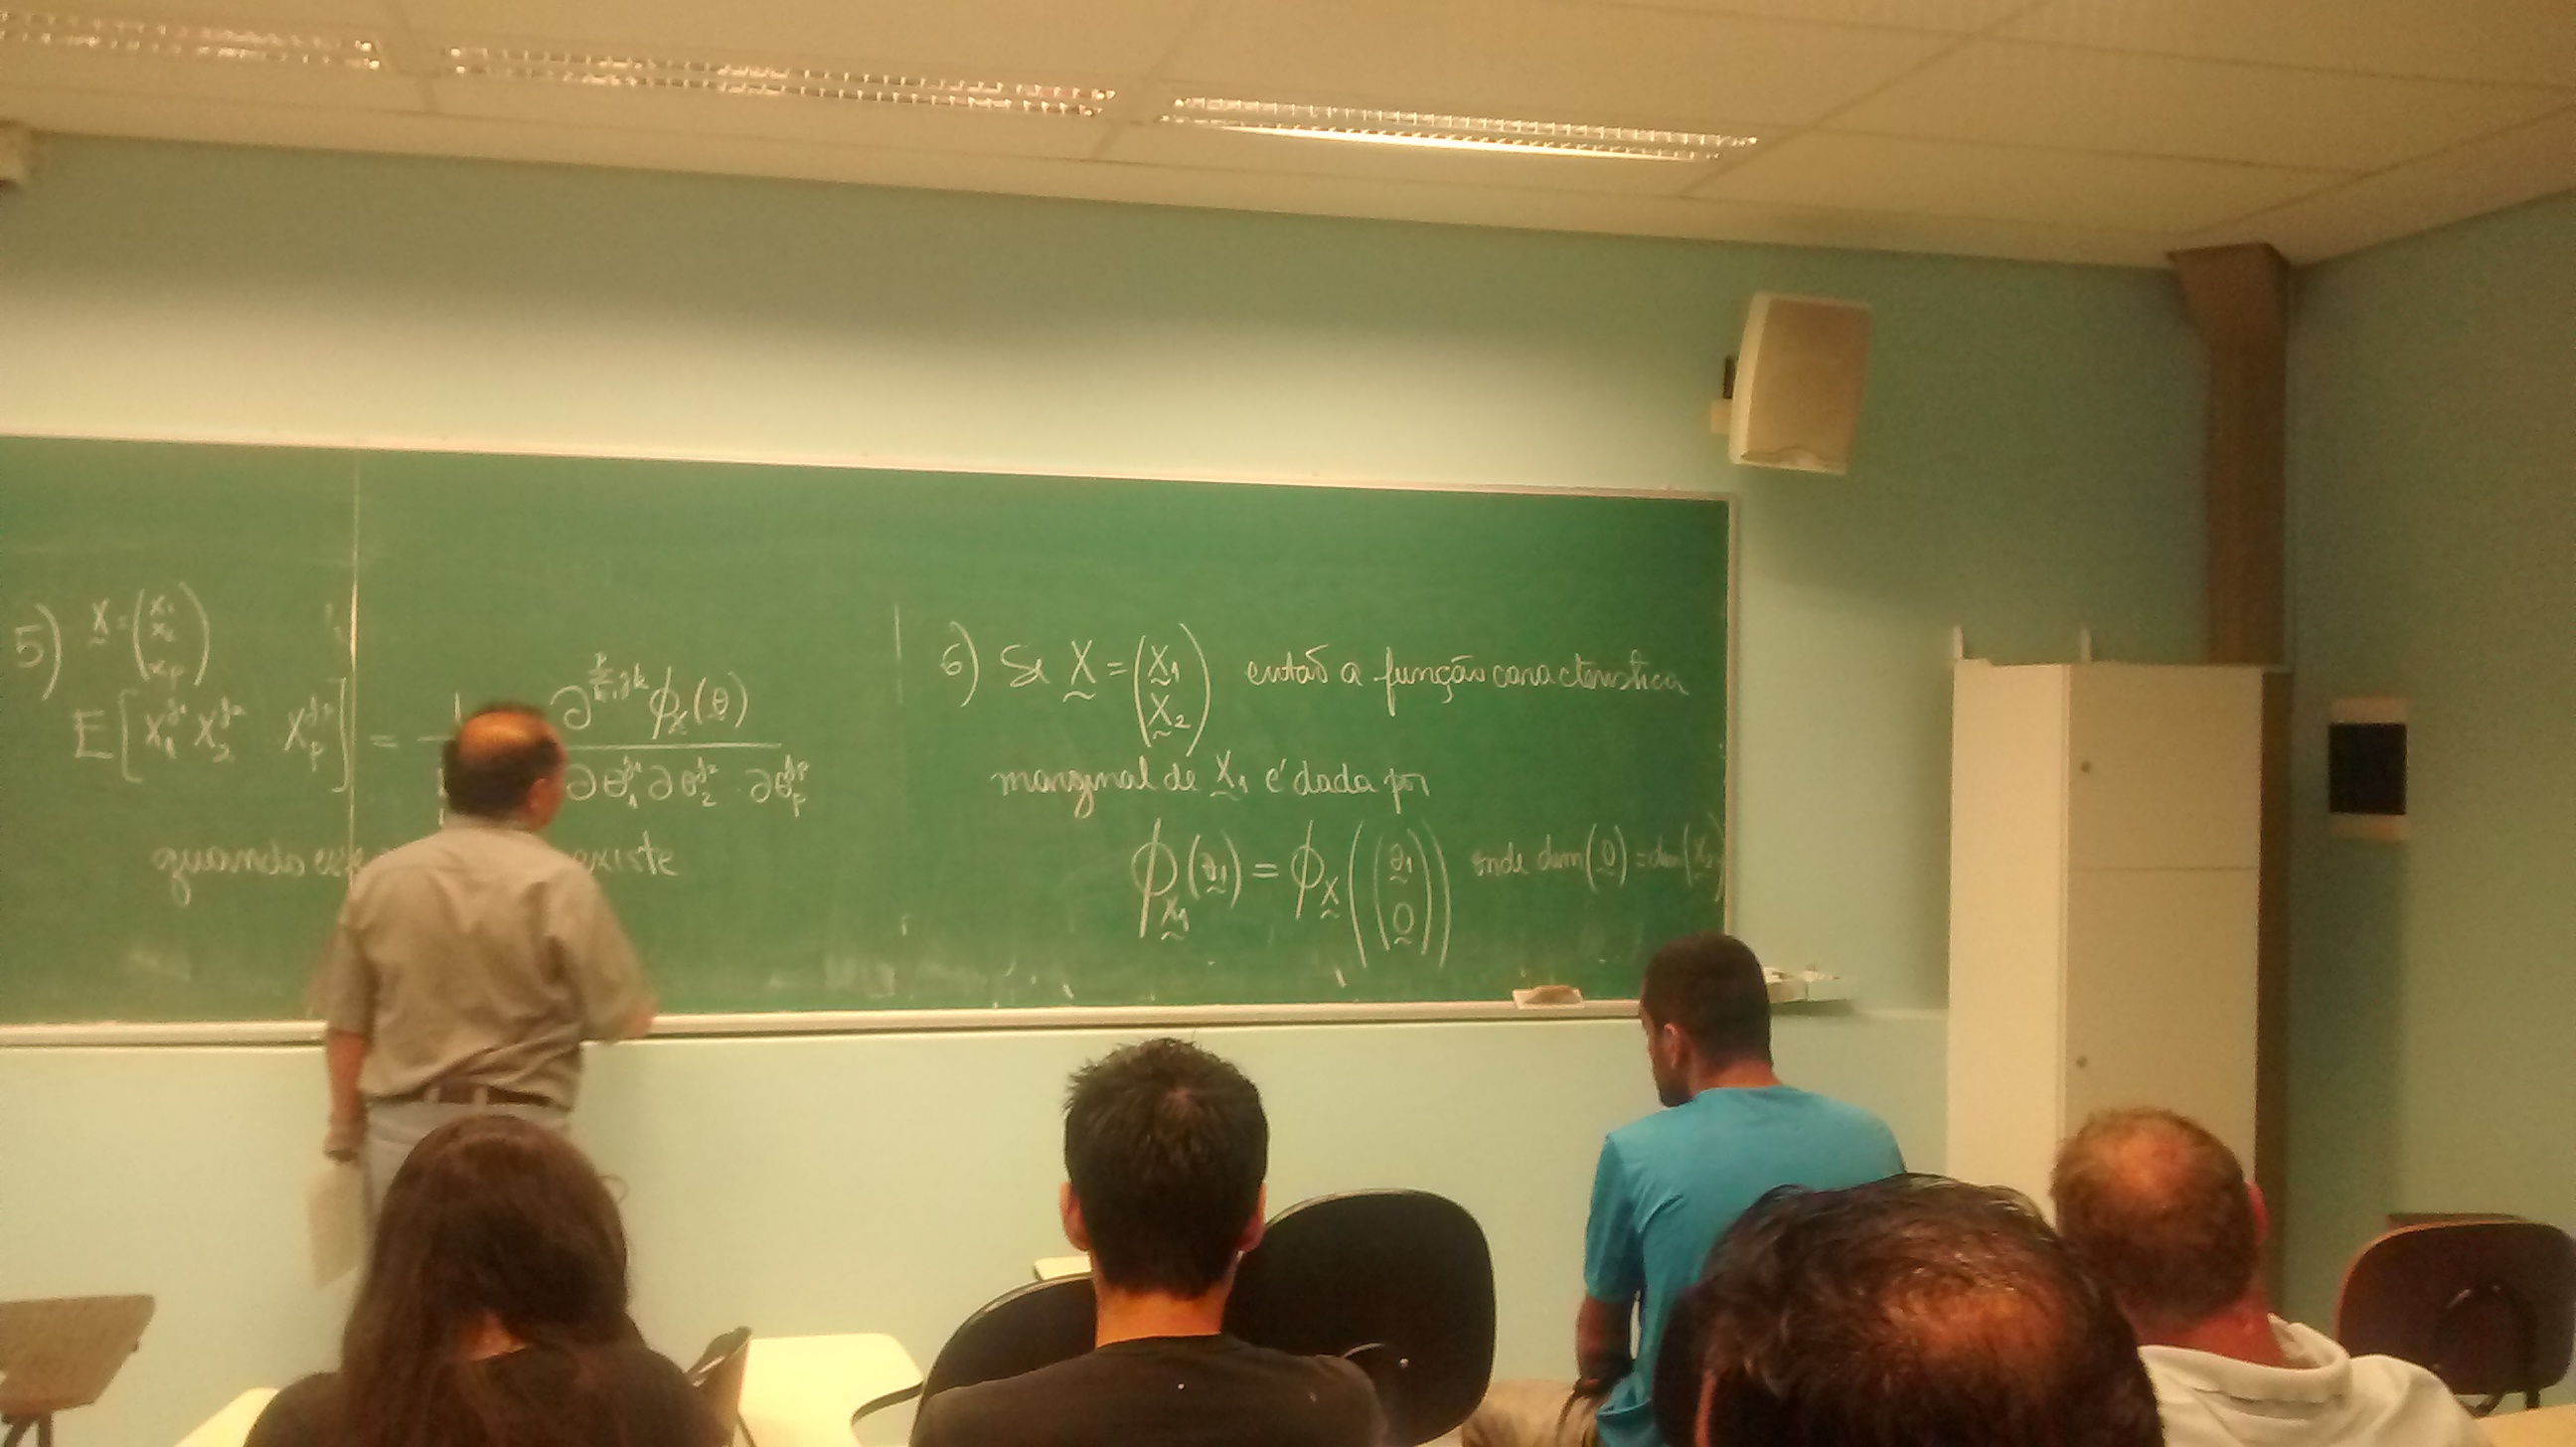 5) X = (x₁ x₂ xₚ)
E[X₁^{j₁} X₂^{j₂} · Xₚ^{jₚ}] = 1 ∂^{Σ_{k=1}^{p} j_k} ϕ_X(θ) / ∂θ₁^{j₁} ∂θ₂^{j₂} · ∂θₚ^{jₚ}
quando existe
6) Se X = (X₁ X₂) então a função característica
marginal de X₁ é dada por
ϕ_{X₁}(θ₁) = ϕ_X((θ₁ 0)) onde dim(0) = dim(X₂)